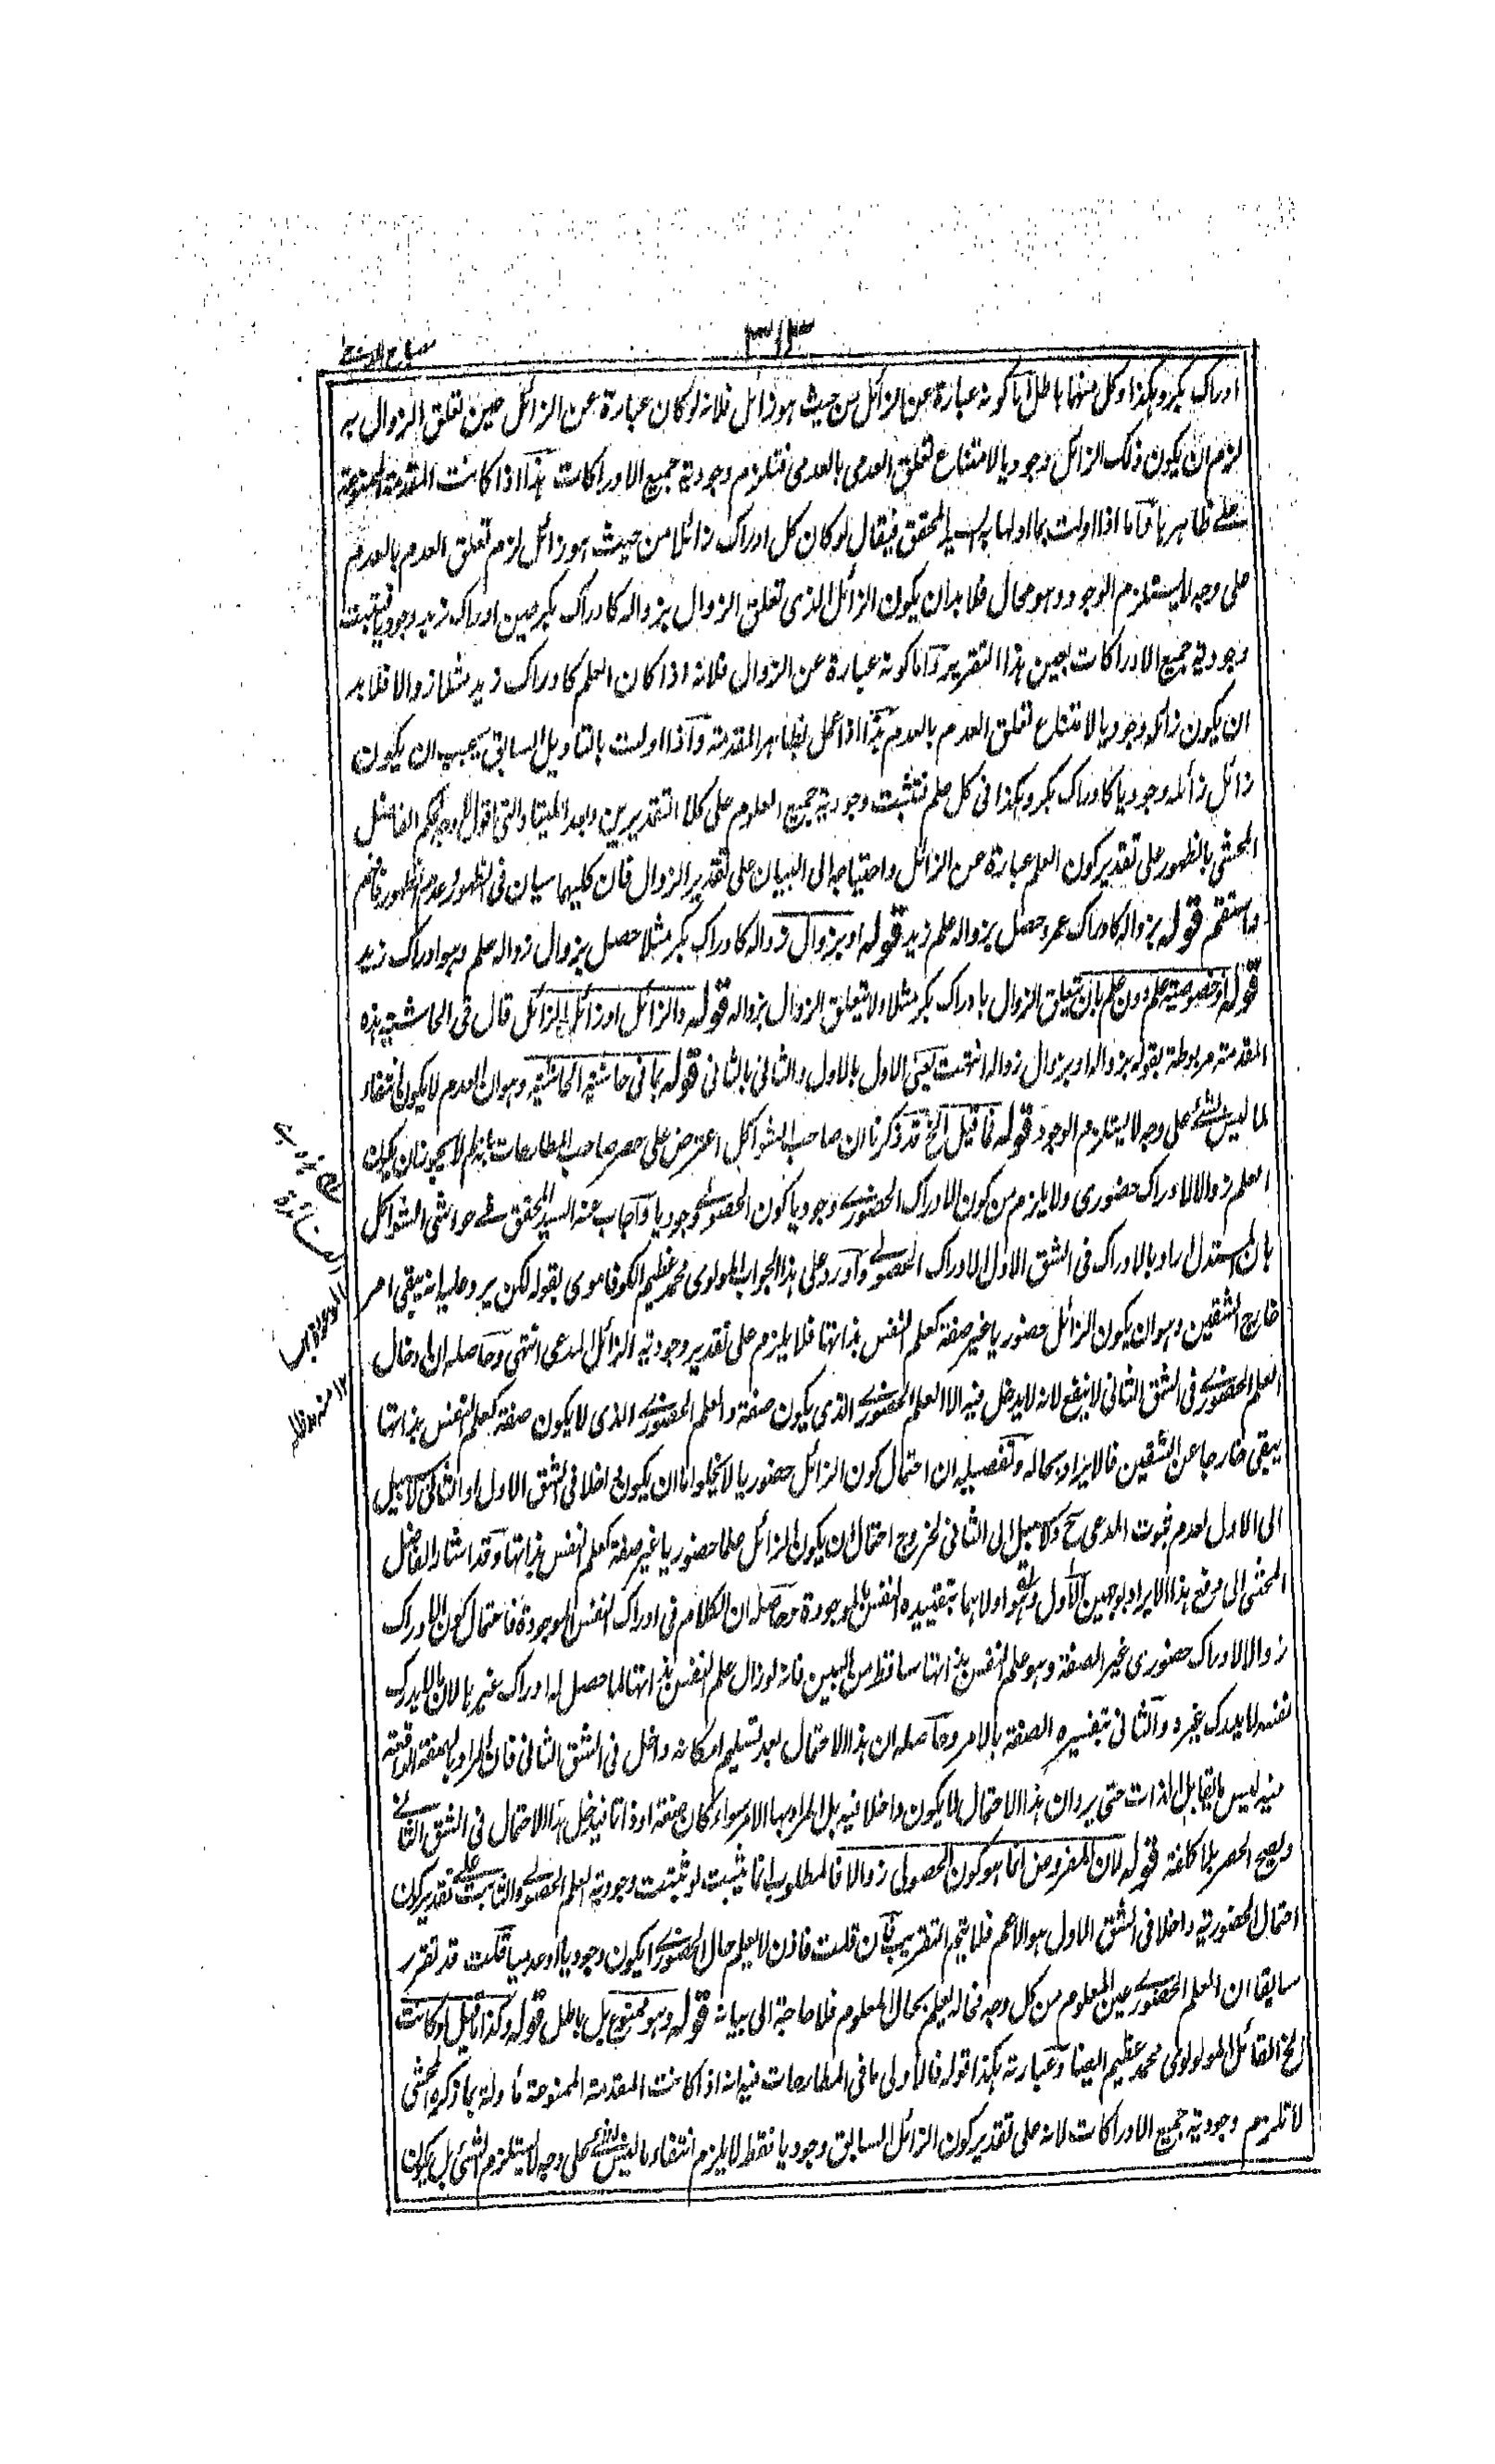 ٣١٣
ادراك بكر وهكذا وكل منهما باطل اما كونه عبارة عن الزائل من حيث هو زائل فلانه لو كان عبارة عن الزائل حين تعلق الزوال به
لزم ان يكون ذلك الزائل وجوديا لامتناع تعلق العدمي بالعدمي فتلزم وجودية جميع الادراكات هذا اذا كانت المقدمة الممنوعة
على ظاهرها واما اذا اولت بما اولها به السيد المحقق فيقال لو كان كل ادراك زائلا من حيث هو زائل لزم تعلق العدم بالعدم
على وجه لا يستلزم الوجود وهو محال فلا بد ان يكون الزائل الذى تعلق الزوال بزواله كادراك بكر حين ادراك زيد وجوديا فيثبت
وجودية جميع الادراكات بعين هذا التقرير واما كونه عبارة عن الزوال فلانه اذا كان العلم كادراك زيد مثلا زوالا فلا بد
ان يكون زائله وجوديا لامتناع تعلق العدم بالعدم هذا اذا عمل بظاهر المقدمة واذا اولت بالتاويل السابق يجب ان يكون
زائل زائله وجوديا كادراك بكر وهكذا فى كل علم فتثبت وجودية جميع العلوم على كلا التقديرين وبعد اللتيا والتى اقول لا وجه لحكم الفاضل
المحشى بالظهور على تقدير كون العلم عبارة عن الزائل واحتياجه الى البيان على تقدير الزوال فان كليهما سيان فى الظهور وعدم الظهور فافهم
واستقم قوله بزواله كادراك عمرو حصل بزواله علم زيد قوله او بزوال زواله كادراك بكر مثلا حصل بزوال زواله علم وهو ادراك زيد
قوله اذ خصوصية علم دون علم بان يتعلق الزوال بادراك بكر مثلا ولا يتعلق الزوال بزواله قوله والزائل او زائل الزائل قال فى الحاشية هذه
المقدمة مربوطة بقوله بزواله او بزوال زواله انتهت يعنى الاول بالاول والثانى بالثانى قوله بما فى حاشية الحاشية وهو ان العدم لا يكون انتفاء
لما ليس بشئ على وجه لا يستلزم الوجود قوله فما قيل الخ قد ذكرنا ان صاحب الشواكل اعترض على حصر صاحب المطارحات بانه لم لا يجوز ان يكون
العلم زوالا لادراك حضورى ولا يلزم من كون الادراك الحضورى وجوديا كون الحصولى وجوديا واجاب عنه السيد المحقق فى حواشى الشواكل
بان المستدل اراد بالادراك فى الشق الاول الادراك الحصولى واورد على هذا الجواب المولوى محمد عظيم الكوفاموى بقوله لكن يرد عليه انه يبقى امر
خارج الشقين وهو ان يكون الزائل حضوريا غير صفة كعلم النفس بذاتها فلا يلزم على تقدير وجودية الزائل المدعى انتهى وحاصله ان ادخال
العلم الحضورى فى الشق الثانى لا ينفع لانه لا يدخل فيه الا العلم الحضورى الذى يكون صفة والعلم الحضورى الذى لا يكون صفة كعلم النفس بذاتها
يبقى خارجا عن الشقين فالايراد بحاله وتفصيله ان احتمال كون الزائل حضوريا لا يخلو اما ان يكون داخلا فى الشق الاول او الثانى لا سبيل
الى الاول لعدم ثبوت المدعى ح ولا سبيل الى الثانى لخروج احتمال ان يكون الزائل علما حضوريا غير صفة كعلم النفس بذاتها وقد اشار الفاضل
المحشى الى دفع هذا الايراد بوجهين الاول وهو اولاهما بتقييده النفس بالموجودة وحاصله ان الكلام فى ادراك النفس الموجودة فاحتمال كون الادراك
زوالا لادراك حضورى غير الصفة وهو علم النفس بذاتها ساقط من البين فانه لو زال علم النفس بذاتها لما حصل له ادراك غيرها لان ما لا يدرك
نفسه لا يدرك غيره والثانى بتفسيره الصفة بالامر وحاصله ان هذا الاحتمال بعد تسليم امكانه داخل فى الشق الثانى فان المراد بالصفة الواقعة
فيه ليس ما يقابل الذات حتى يرد ان هذا الاحتمال لا يكون داخلا فيه بل المراد بها الامر سواء كان صفة او ذاتا فيدخل هذا الاحتمال فى الشق الثانى
ويصح الحصر بلا كلفة قوله لان المفروض انما هو كون الحصولى زوالا فالمطلوب انما يثبت لو ثبتت وجودية العلم الحصولى والثابت على تقدير كون
احتمال الحضورية داخلا فى الشق الاول هو الاعم فلا يتم التقريب فان قلت فاذن لا يعلم حال الحضورى ايكون وجوديا او عدميا قلت قد تقرر
سابقا ان العلم الحضورى عين المعلوم من كل وجه فحاله يعلم بحال المعلوم فلا حاجة الى بيانه قوله وهو ممنوع بل باطل قوله وكذا ما قيل لو كانت
الخ القائل المولوى محمد عظيم ايضا وعبارته هكذا قوله فالاولى ما فى المطارحات فيه انه اذا كانت المقدمة الممنوعة مأولة بما ذكره المحشى
لا تلزم وجودية جميع الادراكات لانه على تقدير كون الزائل السابق وجوديا فقط لا يلزم انتفاء ما ليس بشئ على وجه لا يستلزم الشئ بل يكون